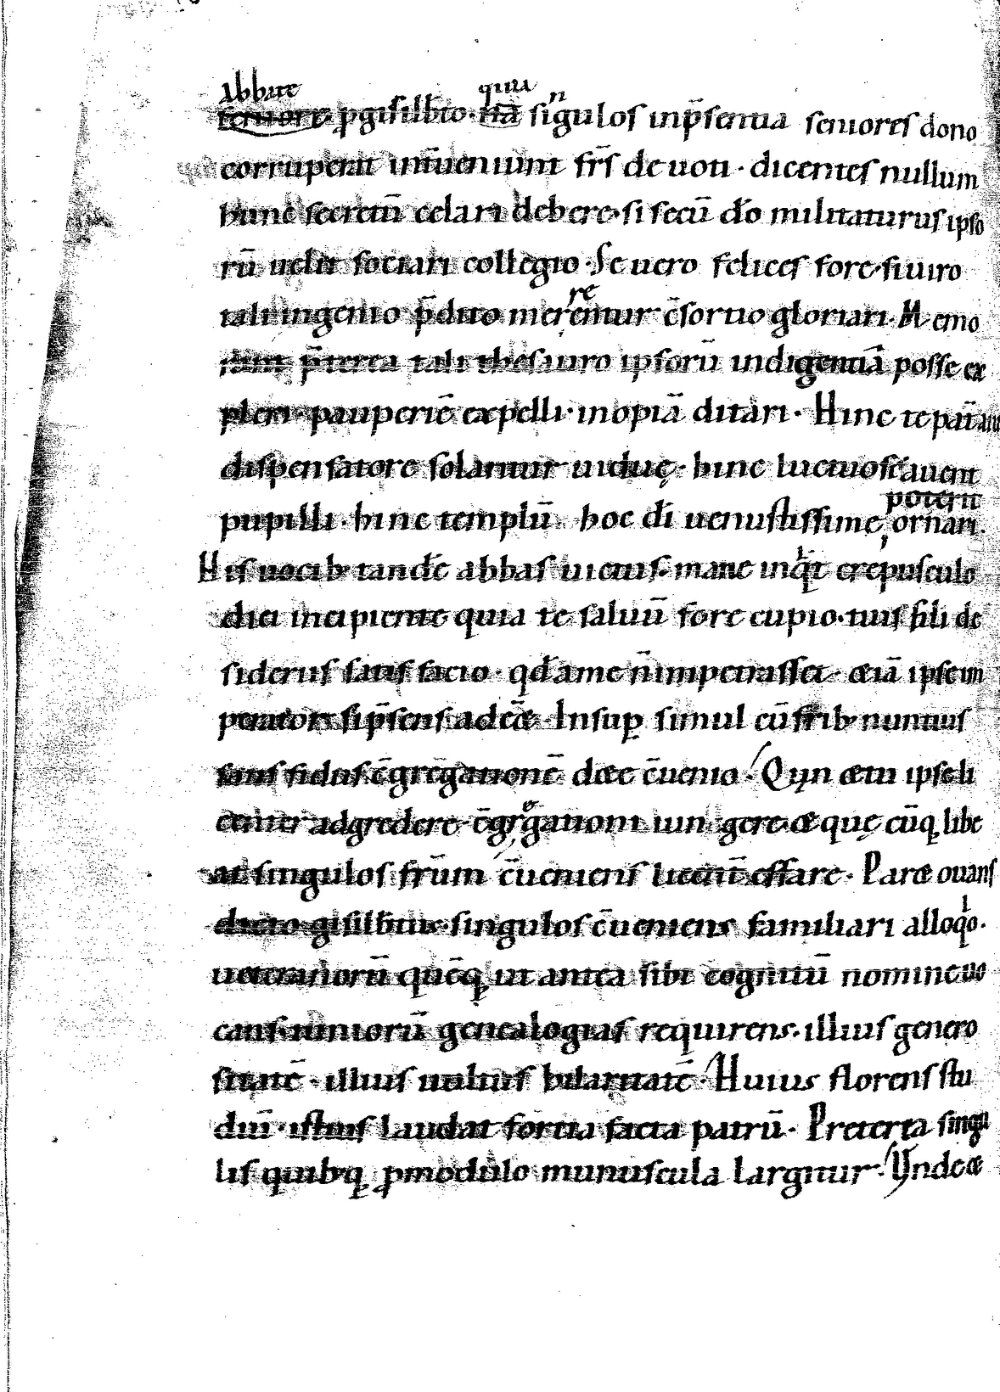 Abbate quia n
seniore p̱gisilb̄to · nā singulos inp̄sentia seniores dono
corruperat inūeniunt fr̄s de uoti · dicentes nullum
hunc secretū celari debere · si secū d̄o militaturus ipso
rū uelit sociari collegio · Se uero felices fore · si uiro
re
tali ingenio p̄dito merentur c̄sortio gloriari · Nemo
p̄terea tali thesauro ipsorū indigentiā posse ex
pleri · pauperiē expelli · inopiā ditari · Hinc te pat̄
dispensatore solantur uiduę · hinc luctuosi auent
poterit
pupilli · hinc templū hoc dī uenustissime, ornari.
His uocib; tandē abbas uictus · mane inqͥt crepusculo
diei incipiente quia te saluū fore cupio · tuis fili de
siderus satis facio · qd̄ a me n̄ impetrasset · &iā ipse im
perator si p̄sens ad&̄ Insuꝑ simul cū frīb; nuntius
satis fidus c̄gregationē d&ec c̄uenio · Qin &iā ipse li
e
center adgredere c̄grgationi iungere & quę cūq̨ libe
at singulos fr̄um c̄ueniens licitū effare · Par& ouans
dicto gisilb̄tus · singulos c̄ueniens familiari alloqͥo ·
ueteranorū quēq̨ ut antea sibi cognitū nomine uo
cans · iuniorū genealogias requirens · illius genero
sitatē · illius hilaritatē · Huius florens stu
diū · istius laudat fortia facta patrū · Preterea singu
lis quibq̨ ꝓmodulo munuscula largitur · Unde &